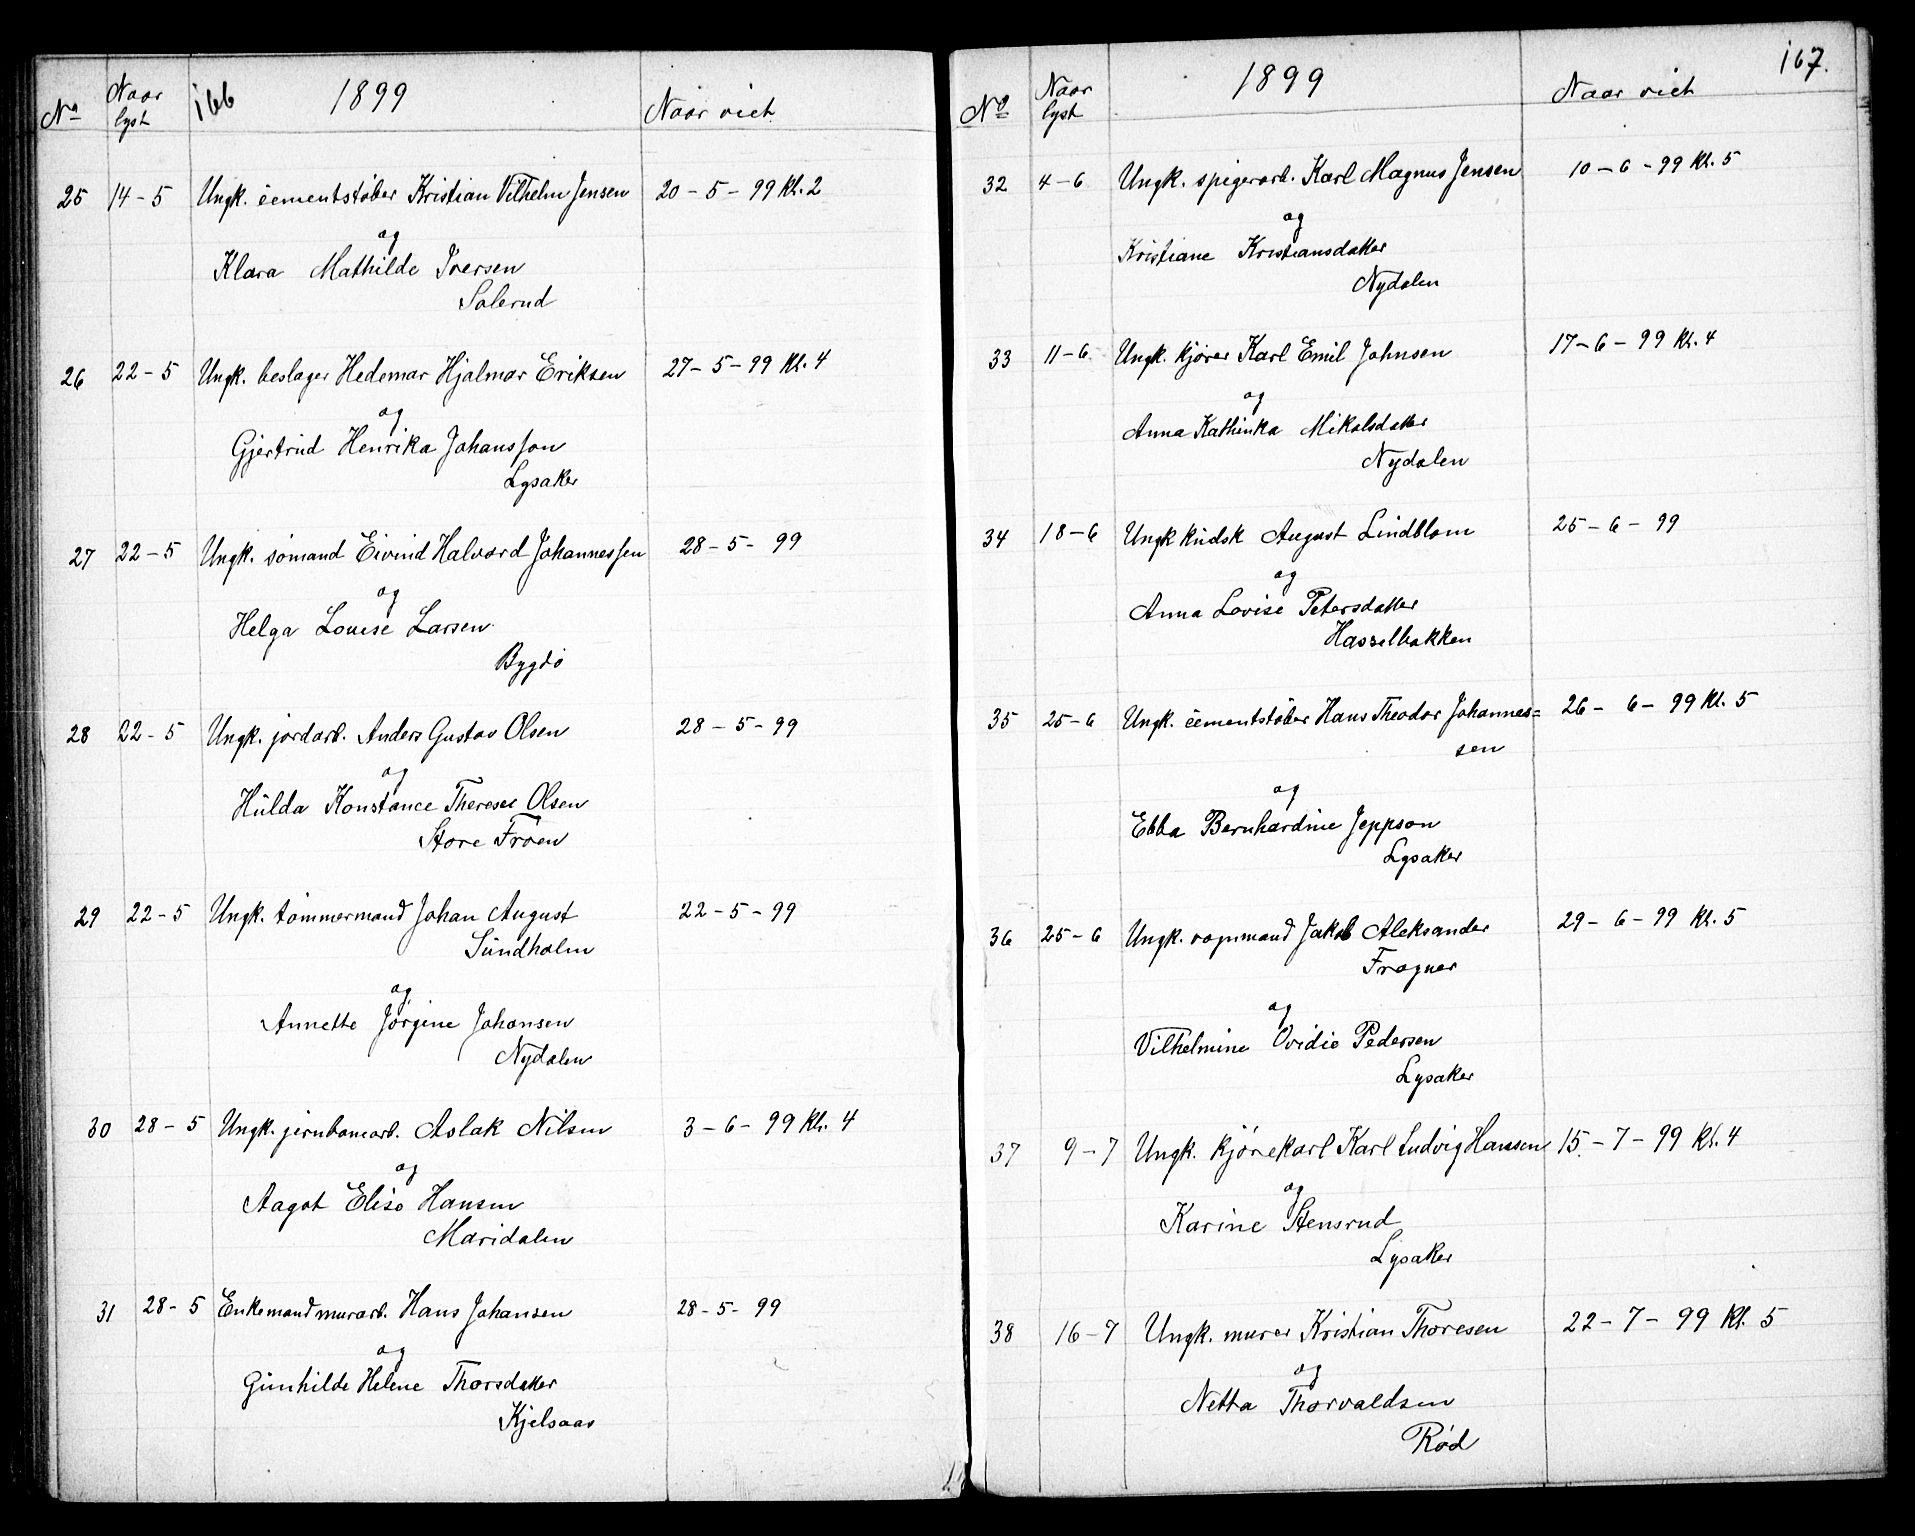 166 1899
No Naar lyst Naar viet
25 14-5 Ungk. cementstøber Kristian Vilhelm Jensen 20-5-99 Kl. 2
og
Klara Mathilde Iversen
Solerud
26 22-5 Ungk. beslager Hedemar Hjalmar Eriksen 27-5-99 Kl. 4
og
Gjertrud Henrika Johansson
Lysaker
27 22-5 Ungk. sömand Eivind Halvard Johannessen 28-5-99
og
Helga Louise Larsen
Bygdö
28 22-5 Ungk. jordarb. Anders Gustav Olsen 28-5-99
og
Hulda Konstance Therese Olsen
Store Fröen
29 22-5 Ungk. tømmermand Johan August 22-5-99
Sundholm
og
Annette Jörgine Johansen
Nydalen
30 28-5 Ungk. jernbanearb. Aslak Nilsen 3-6-99 Kl. 4
og
Aagot Elise Hansen
Maridalen
31 28-5 Enkemand murarb. Hans Johansen 28-5-99
og
Gunhilde Helene Thorsdatter
Kjelsaas
1899 167.
No Naar lyst Naar viet
32 4-6 Ungk. spigerarb. Karl Magnus Jensen 10-6-99 Kl. 5
og
Kristiane Kristiansdatter
Nydalen
33 11-6 Ungk. kjører Karl Emil Johnsen 17-6-99 Kl. 4
og
Anna Kathinka Mikalsdatter
Nydalen
34 18-6 Ungk kudsk August Lindblom 25-6-99
og
Anna Lovise Petersdatter
Hasselbakken
35 25-6 Ungk. cementstøber Hans Theodor Johannes= 26-6-99 Kl. 5
sen
og
Ebba Bernhardine Jeppson
Lysaker
36 25-6 Ungk. vognmand Jakob Aleksander 29-6-99 Kl. 5
Frogner
og
Vilhelmine Ovidie Pedersen
Lysaker
37 9-7 Ungk. kjörekarl Karl Ludvig Hanssen 15-7-99 Kl. 4
og
Karine Stensrud
Lysaker
38 16-7 Ungk. murer Kristian Thoresen 22-7-99 Kl. 5
og
Netta Thorvaldsen
Rød